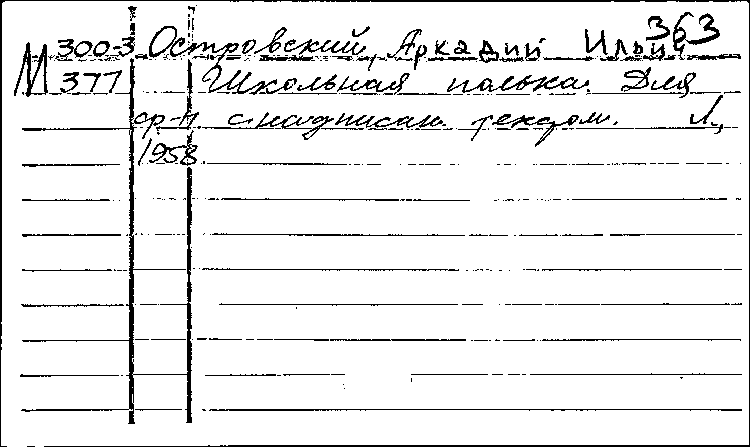 363
М 300-3 Островский, Аркадий Ильич
377 Школьная полька. Для
ср-п. с надписан. текстом. Л.,
1958.